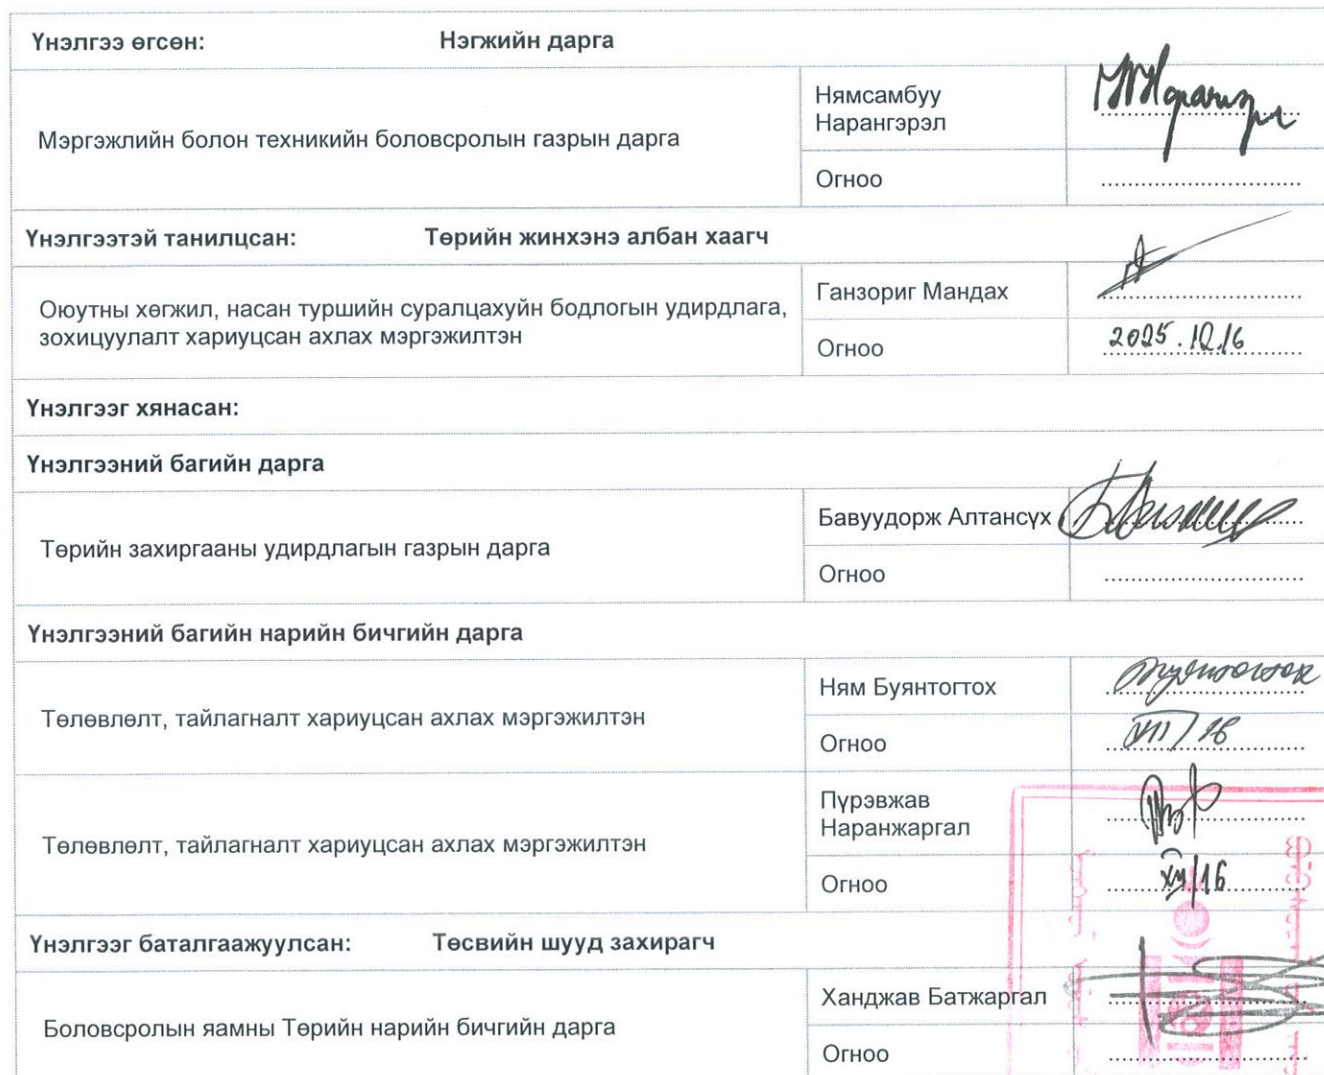 Үнэлгээ өгсөн: Нэгжийн дарга
Мэргэжлийн болон техникийн боловсролын газрын дарга
Нямсамбуу
Нарангэрэл
Огноо
Үнэлгээтэй танилцсан: Төрийн жинхэнэ албан хаагч
Оюутны хөгжил, насан туршийн суралцахуйн бодлогын удирдлага,
зохицуулалт хариуцсан ахлах мэргэжилтэн
Ганзориг Мандах
Огноо 2025.12.16
Үнэлгээг хянасан:
Үнэлгээний багийн дарга
Төрийн захиргааны удирдлагын газрын дарга
Бавуудорж Алтансүх
Огноо
Үнэлгээний багийн нарийн бичгийн дарга
Төлөвлөлт, тайлагналт хариуцсан ахлах мэргэжилтэн
Ням Буянтогтох
Огноо XII/16
Төлөвлөлт, тайлагналт хариуцсан ахлах мэргэжилтэн
Пүрэвжав
Наранжаргал
Огноо XII/16
Үнэлгээг баталгаажуулсан: Төсвийн шууд захирагч
Боловсролын яамны Төрийн нарийн бичгийн дарга
Ханджав Батжаргал
Огноо